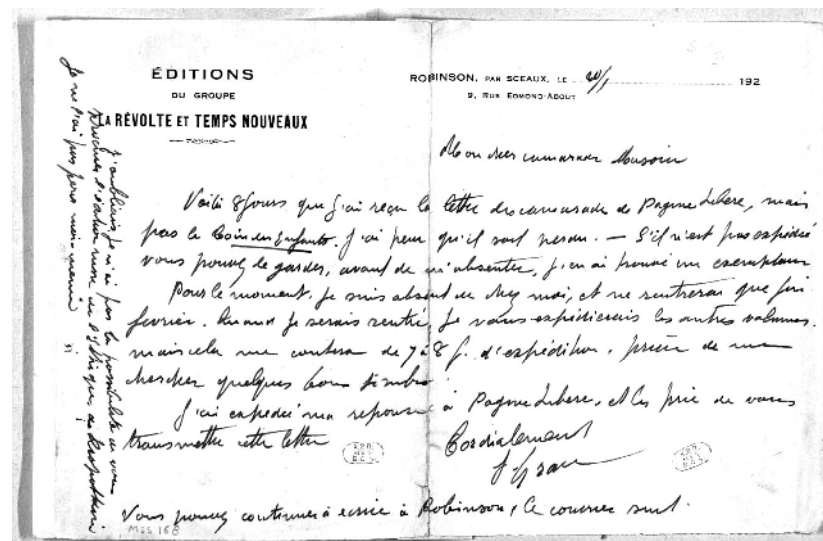 ÉDITIONS
DU GROUPE
LA RÉVOLTE ET TEMPS NOUVEAUX
ROBINSON, PAR SCEAUX, LE 20/1 192
9, RUE EDMOND-ABOUT
Mon cher camarade
Voilà 8 jours que j'ai reçu la lettre des camarades de Pagine Libere, mais
pas le Coin des Enfants. J'ai peur qu'il soit perdu. — S'il n'est pas expédié
vous pouvez le garder, avant de m'absenter, j'en ai trouvé un exemplaire
Pour le moment, je suis absent de chez moi, et ne rentrerai que fin
février. Quand je serais rentré, je vous expédierais les autres volumes.
mais cela me coutera de 7 à 8 f. d'expédition. prière de me
chercher quelques bons timbres
J'ai expédié ma reponse à Pagine Libere, et les prie de vous
transmettre cette lettre
Cordialement
J Grave
Vous pouvez continuer à écrire à Robinson, le courrier suit.
MSS 168
J'oubliais, je n'ai pas la possibilité de vous
procurer l'édition russe de l'Ethique de Kropotkine.
Je ne l'ai pas pour moi-même